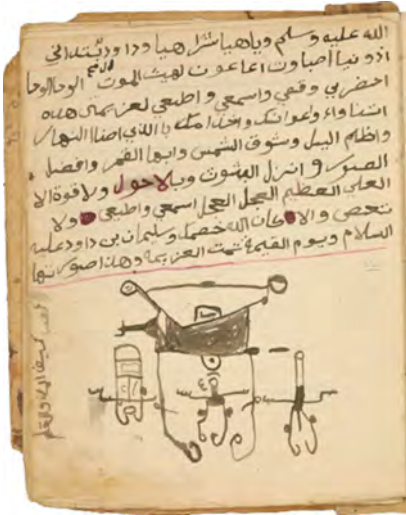 الله عليه وسلم وياهيا شراهيا وداوديتد اخي
اذونيا اصباوت اعاعون لهيث الموت الوحا الوحا
احضربي وقفي واسمعي واطبعي لعزيمتي هذه
انتي واعوانك وخدامك بالذي اضا النهار
واظلم اليل وشوق الشمس وابها القمر وافضل
الصور وانزل الغيوث وبلاحول ولاقوة الا
العلي العظيم العجل العجل اسمعي واطبعي ولا
تعصي والا كان الله خصمك وسليمان بن داود عليه
السلام ويوم القيمة تمت العزيمة وهذا صورتها